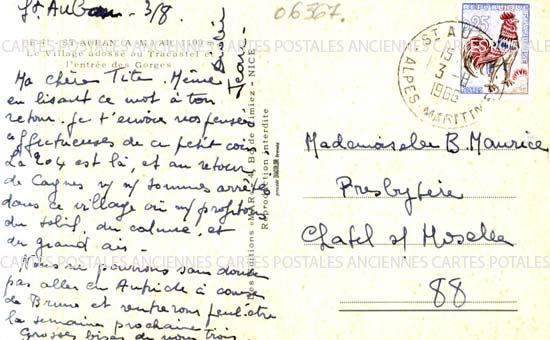 St Auban - 3/8
06367.
ST-AUBAN (A.-M.)
Le Village adossé au
l'entrée des Gorges
Ma chère Titem. Même
en lisant ce mot à ton
retour. je t'envoie nos pensées
affectueuses de ce petit coin
La 204 est là, et au retour
de Cagnes n/ n/ sommes arrêtés
dans ce village où n/ profitons
du soleil, du calme, et
du grand air -
Nous ne pourrons sans doute
pas aller en à cause
de Bruno et rentrerons peut-être
la semaine prochaine
Grosses bises de nous trois
Reproduction interdite
NICE
ST AU
13
3-8
1966
ALPES-MARITIMES
0,25
Mademoiselle B. Maurice
Presbytère
Chatel s/ Moselle
88
CARTES POSTALES ANCIENNES CARTES POSTALES ANCIENNES CARTES POSTALES
CARTES POSTALES ANCIENNES CARTES POSTALES ANCIENNES CARTES POSTALES